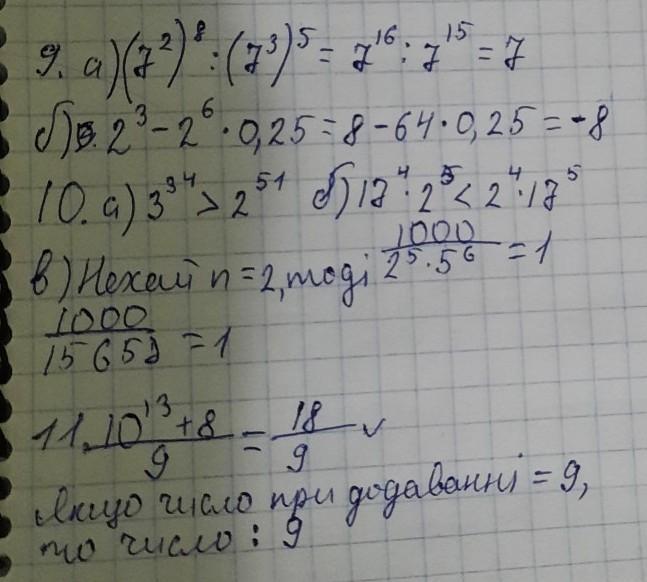 9. а) (7²)⁸ : (7³)⁵ = 7¹⁶ : 7¹⁵ = 7
б) 2³ − 2⁶ · 0,25 = 8 − 64 · 0,25 = −8
10. а) 3³⁴ > 2⁵¹ б) 17⁴ · 2⁵ < 2⁴ · 17⁵
в) Нехай n = 2, тоді 1000 / 2⁵ · 5⁶ = 1
1000 / 15652 = 1
11. 10¹³ + 8 / 9 = 18 / 9 ✓
Якщо число при додаванні = 9,
то число : 9